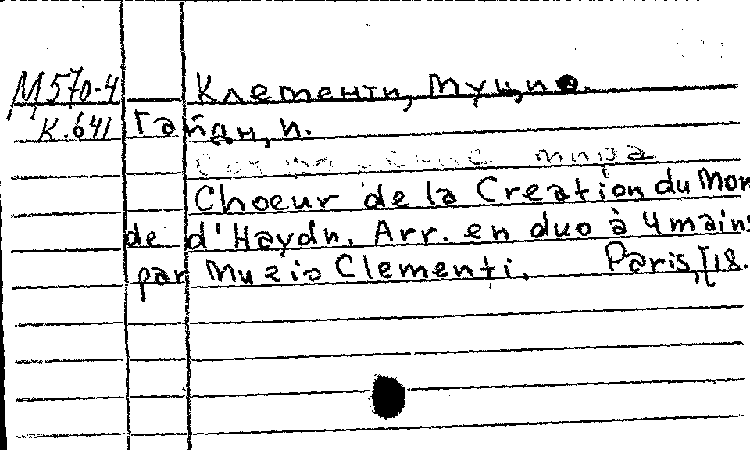 М570-4 Клементи, Муцио.
К.641 Гайдн, И.
мира
Choeur de la Creation du Mon
de d'Haydn. Arr. en duo à 4 mains
par Muzio Clementi. Paris,